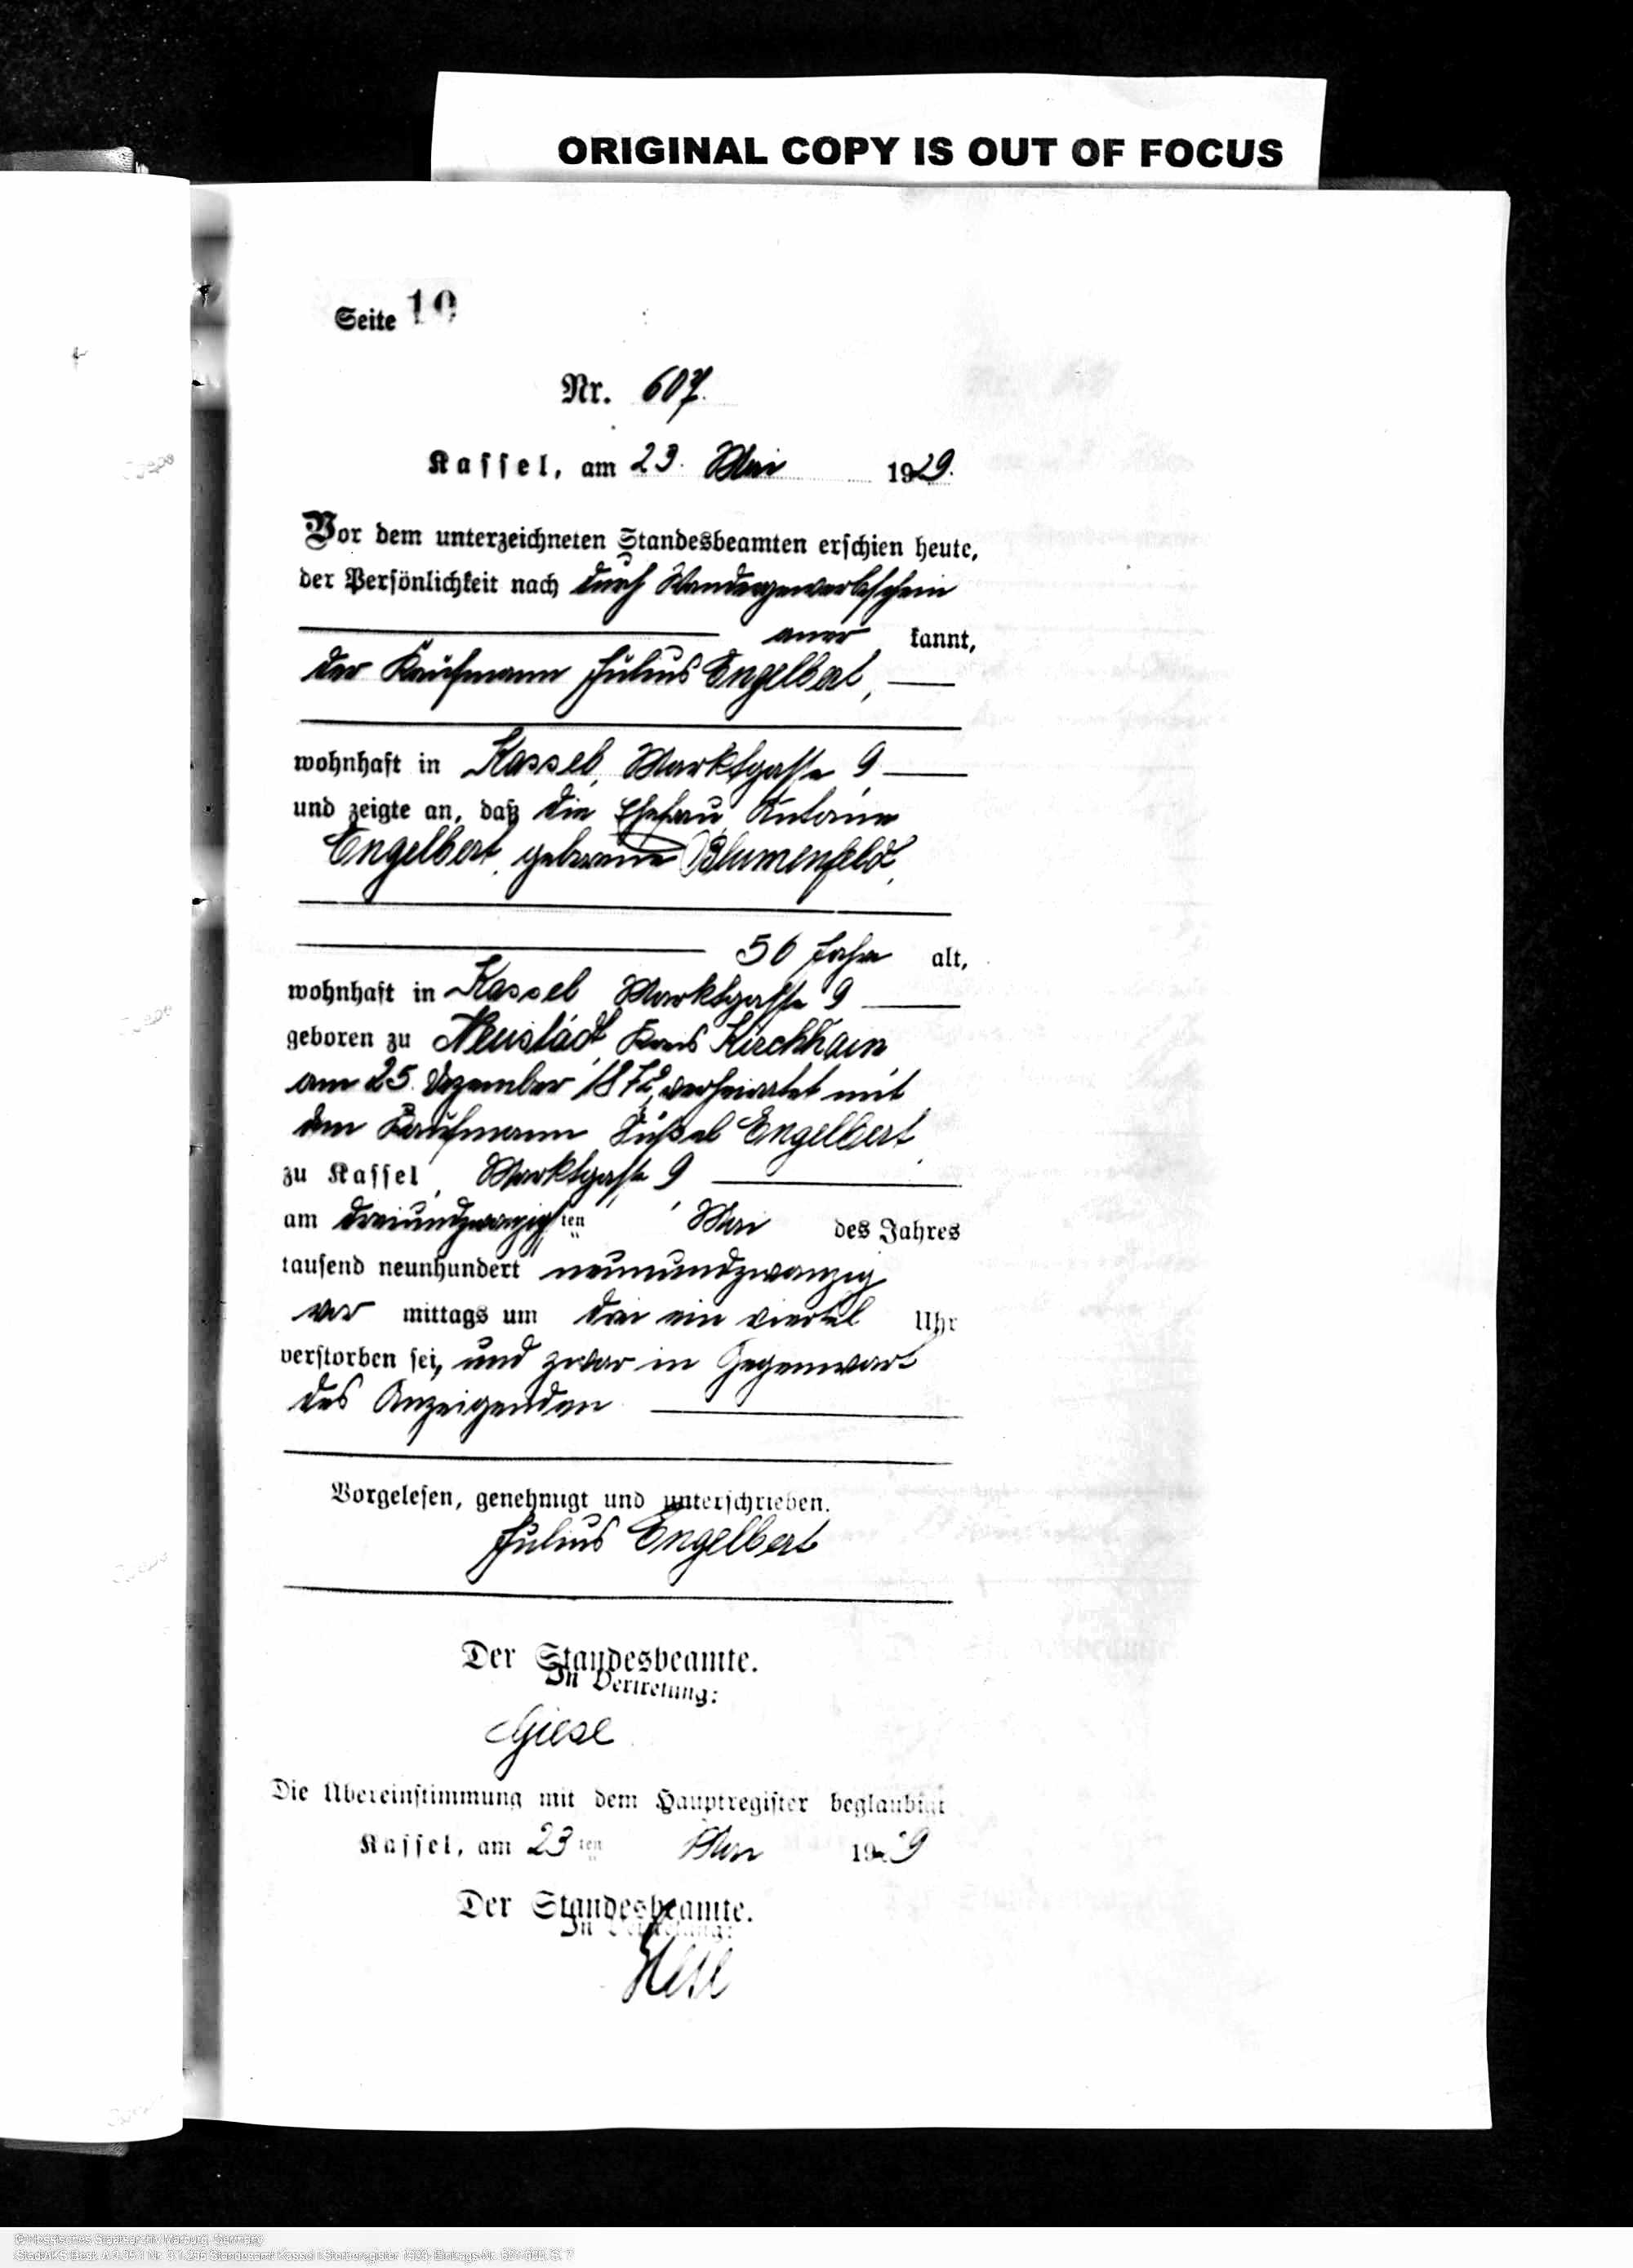 ORIGINAL COPY IS OUT OF FOCUS
Seite 10
Nr. 607.
Kassel, am 23. Mai 1929.
Vor dem unterzeichneten Standesbeamten erschien heute,
der Persönlichkeit nach durch Wandergewerbeschein
aner kannt,
der Kaufmann Julius Engelbert,
wohnhaft in Kassel, Marktgasse 9
und zeigte an, daß die Ehefrau Antonie
Engelbert, geborene Blumenfeld,
56 Jahre alt,
wohnhaft in Kassel Marktgasse 9
geboren zu Neustadt, Kreis Kirchhain
am 25. Dezember 1872, verheiratet mit
dem Kaufmann Engelbert
zu Kassel, Marktgasse 9
am dreiundzwanzigsten Mai des Jahres
tausend neunhundert neunundzwanzig
vor mittags um drei ein viertel Uhr
verstorben sei, und zwar in Gegenwart
des Anzeigenden
Vorgelesen, genehmigt und unterschrieben.
Julius Engelbert
Der Standesbeamte.
In Vertretung:
Giese
Die Übereinstimmung mit dem Hauptregister beglaubigt
Kassel, am 23ten Mai 1929
Der Standesbeamte.
In Vertretung:
Giese